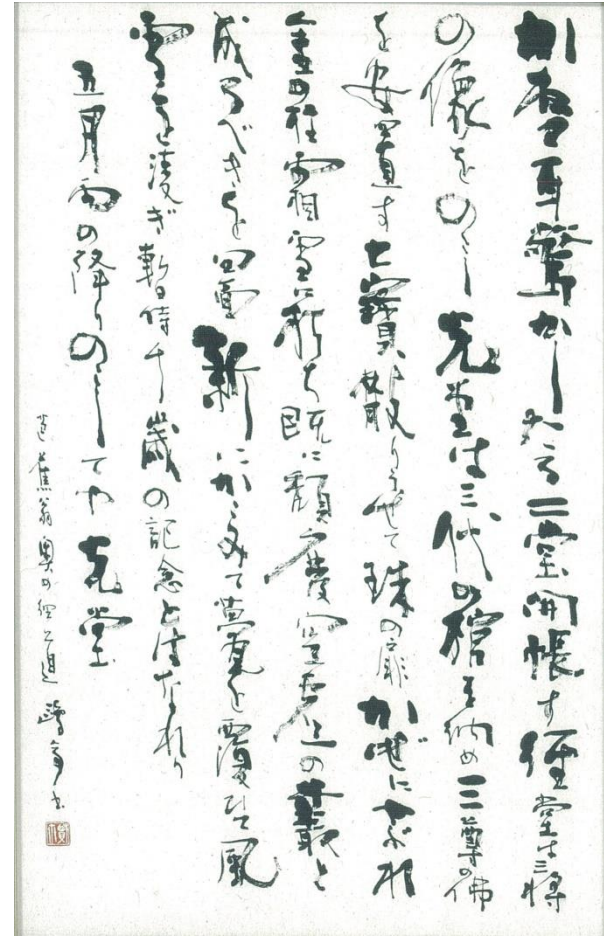 かねて耳驚かしたる二堂開帳す經堂は三将
の像をのこし光堂は三代の棺を納め三尊の佛
を安置す七寳散りうせて珠の扉かぜにやぶれ
金の柱霜雪に朽ち既に頽廢空虚の叢と
成るべきを四面新にかこみて甍を覆ひて風
雪を凌ぎ暫時千歳の記念とはなれり
五月雨の降りのこしてや光堂
芭蕉翁奥の細道